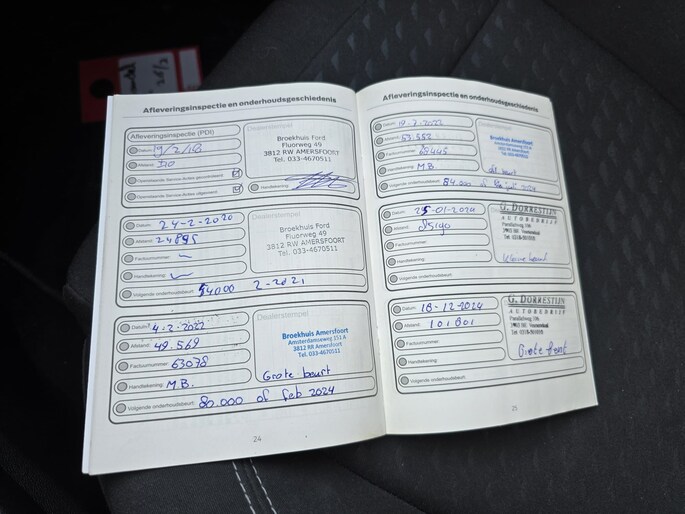 Afleveringsinspectie en onderhoudsgeschiedenis
Afleveringsinspectie (PDI)
Dealerstempel
Datum:
Afstand:
Broekhuis Ford
Fluorweg 49
3812 RW AMERSFOORT
Tel. 033-4670511
Handtekening:
Dealerstempel
Datum: 24-2-2020
Afstand: 24895
Factuurnummer:
Handtekening:
Volgende onderhoudsbeurt: 54000 2-2021
Broekhuis Ford
Fluorweg 49
3812 RW AMERSFOORT
Tel. 033-4670511
Dealerstempel
Datum: 4-2-2022
Afstand: 49.569
Factuurnummer: 63078
Handtekening: M B.
Volgende onderhoudsbeurt: 80.000 of feb 2024
Broekhuis Amersfoort
Amsterdamseweg 151 A
3812 RR Amersfoort
Tel. 033-4670511
Grote beurt
24
Afleveringsinspectie en onderhoudsgeschiedenis
Datum:
Afstand:
Factuurnummer:
Handtekening: M B
Volgende onderhoudsbeurt: 84.000 of
Dealerstempel
Broekhuis Amersfoort
beurt
Datum: 25-01-2024
Afstand:
Factuurnummer:
Handtekening:
Volgende onderhoudsbeurt:
G. DORRESTIJN
AUTOBEDRIJF
Kleine beurt
Datum: 18-12-2024
Afstand: 101801
Factuurnummer:
Handtekening:
Volgende onderhoudsbeurt:
G. DORRESTIJN
AUTOBEDRIJF
Grote beurt
25